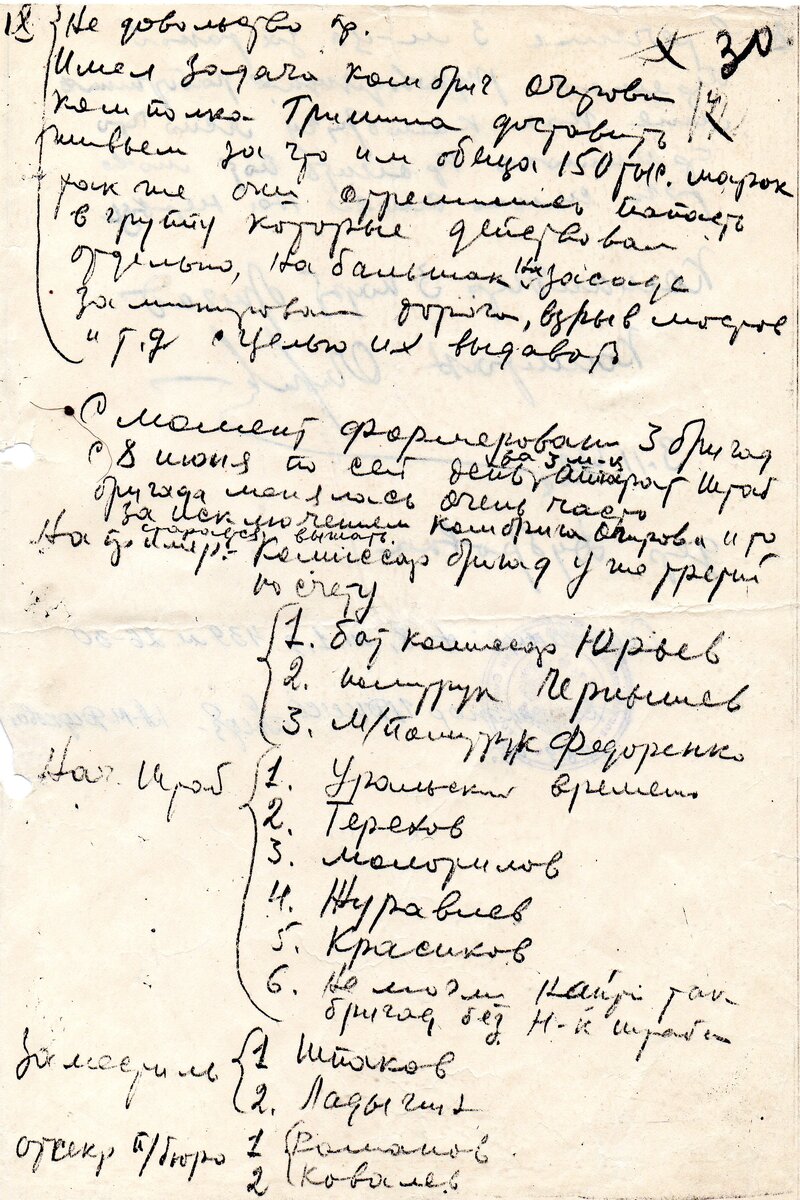 IX Не довольство гр. 30
Имел задача комбриг Очирова
ком полка Гришина доставить
живьем за что им обеща 150 тыс. марок
так же они стремились попасть
в групу которые действовал
отдельно, на бальшак на засаде
заминировал дорога, взрыв мостов
и т.д. с целью их выдават
С момент формерован 3 бригад
с 8 июня по сей день за 3 м-ц аппарат штаб
бригада менялась очень часто
за исключением комбрига Очирова и го
старался выжать.
На пример: Комиссар бригад уже третий
по счету
1. бат комиссар Юрьев
2. политрук Чернышев
3. М/политрук Федоренко
Нач. Штаб 1. Уральский времен.
2. Терехов
3.
4. Журавлев
5. Красиков
6. Не могли найти так
бригад без Н-к штаба
Заместиль 1 Шпаков
2. Ладыгин
отсекр п/бюро 1 Романов
2 Ковалев